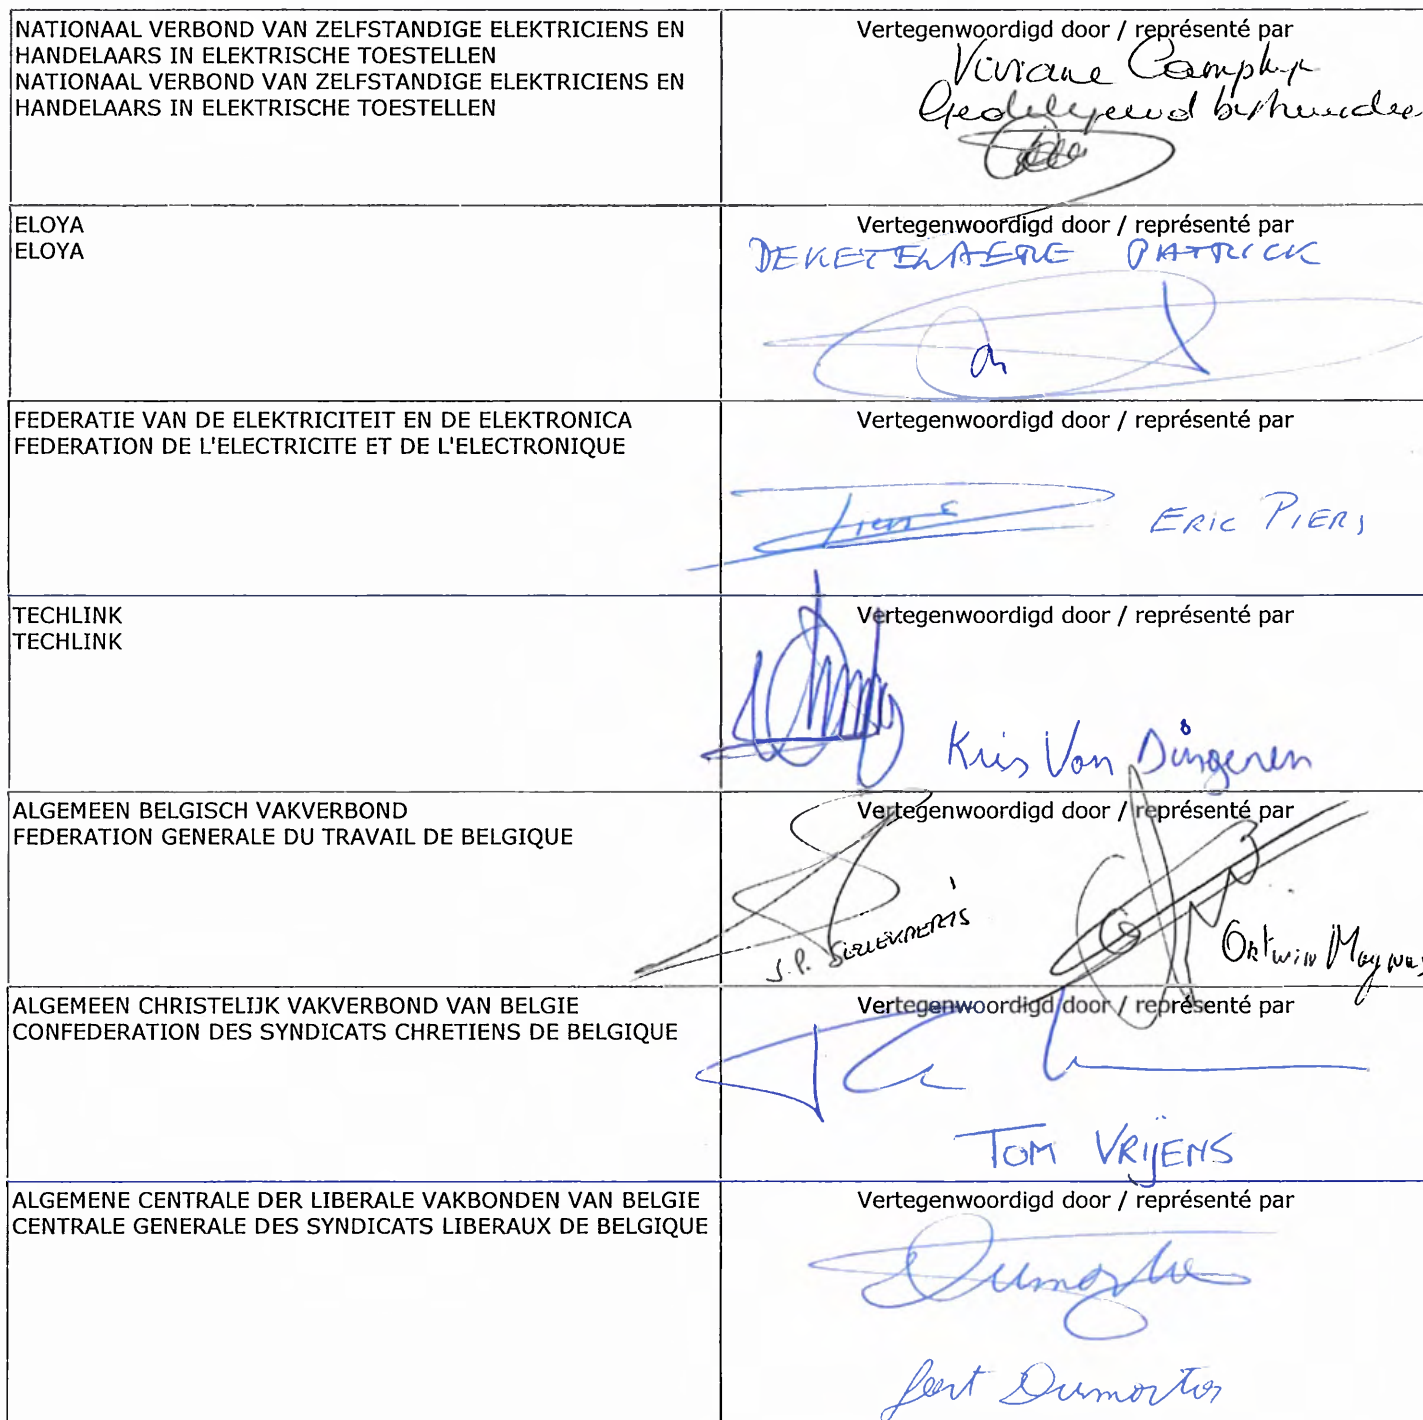 NATIONAAL VERBOND VAN ZELFSTANDIGE ELEKTRICIENS EN
HANDELAARS IN ELEKTRISCHE TOESTELLEN
NATIONAAL VERBOND VAN ZELFSTANDIGE ELEKTRICIENS EN
HANDELAARS IN ELEKTRISCHE TOESTELLEN
Vertegenwoordigd door / représenté par
Viviane Camphyn
Gedelegeerd bestuurder
ELOYA
ELOYA
Vertegenwoordigd door / représenté par
DEKETELAERE PATRICK
FEDERATIE VAN DE ELEKTRICITEIT EN DE ELEKTRONICA
FEDERATION DE L'ELECTRICITE ET DE L'ELECTRONIQUE
Vertegenwoordigd door / représenté par
ERIC PIERS
TECHLINK
TECHLINK
Vertegenwoordigd door / représenté par
Kris Van Dingenen
ALGEMEEN BELGISCH VAKVERBOND
FEDERATION GENERALE DU TRAVAIL DE BELGIQUE
Vertegenwoordigd door / représenté par
J.P.
Ortwin Magnus
ALGEMEEN CHRISTELIJK VAKVERBOND VAN BELGIE
CONFEDERATION DES SYNDICATS CHRETIENS DE BELGIQUE
Vertegenwoordigd door / représenté par
TOM VRIJENS
ALGEMENE CENTRALE DER LIBERALE VAKBONDEN VAN BELGIE
CENTRALE GENERALE DES SYNDICATS LIBERAUX DE BELGIQUE
Vertegenwoordigd door / représenté par
Geert Dumortier